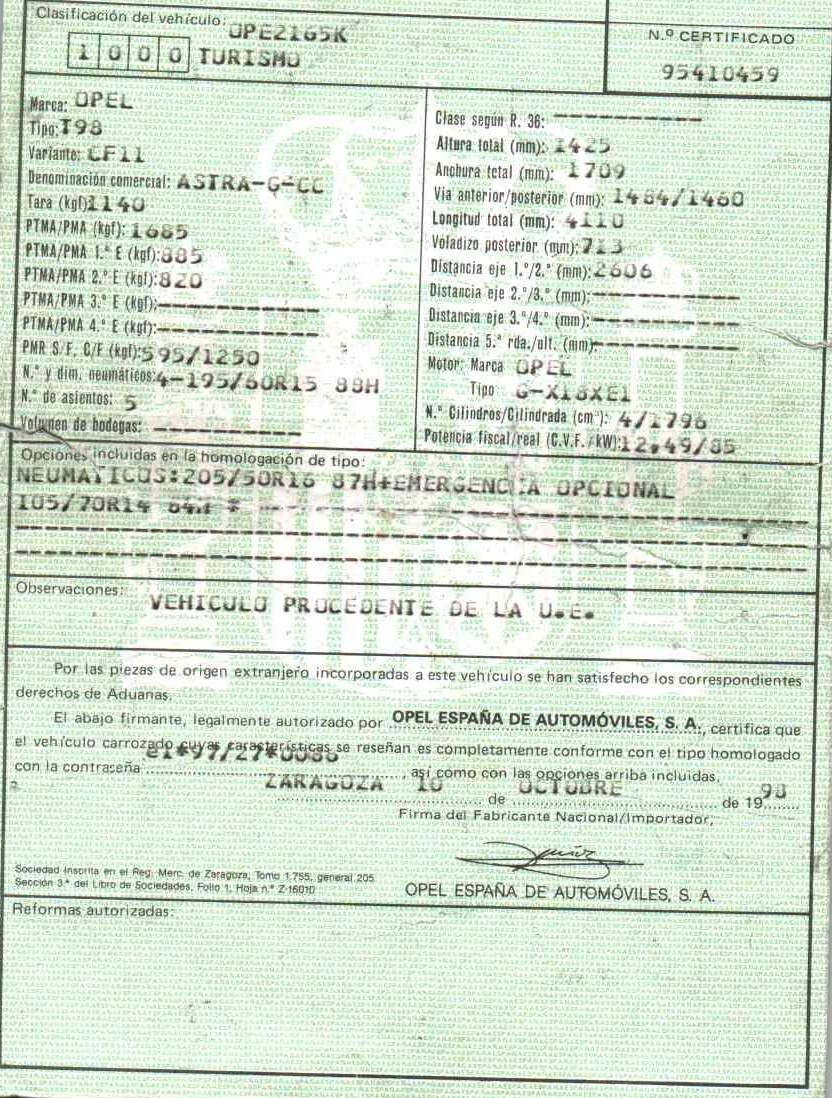 Clasificación del vehículo: OPE2165K
1000 TURISMO
N.º CERTIFICADO
95410459
Marca: OPEL
Tipo: T98
Variante: CF11
Denominación comercial: ASTRA-G-CC
Tara (kgf) 1140
PTMA/PMA (kgf): 1685
PTMA/PMA 1.º E (kgf): 885
PTMA/PMA 2.º E (kgf): 820
PTMA/PMA 3.º E (kgf): ------------
PTMA/PMA 4.º E (kgf): ------------
PMR S/F, C/F (kgf): 595/1250
N.º y dim. neumáticos: 4-195/60R15 88H
N.º de asientos: 5
Volumen de bodegas: -----------
Clase según R. 36: -----------
Altura total (mm): 1425
Anchura total (mm): 1709
Via anterior/posterior (mm): 1484/1460
Longitud total (mm): 4110
Voladizo posterior (mm): 713
Distancia eje 1.º/2.º (mm): 2606
Distancia eje 2.º/3.º (mm): -----------
Distancia eje 3.º/4.º (mm): -----------
Distancia 5.ª rda./ult. (mm): -----------
Motor: Marca OPEL
Tipo G-X18XE1
N.º Cilindros/Cilindrada (cm³): 4/1796
Potencia fiscal/real (C.V.F./kW): 12,49/85
Opciones incluidas en la homologación de tipo:
NEUMATICOS:205/50R16 87H*EMERGENCIA OPCIONAL
105/70R14 84M *
Observaciones: VEHICULO PROCEDENTE DE LA U.E.
Por las piezas de origen extranjero incorporadas a este vehículo se han satisfecho los correspondientes
derechos de Aduanas.
El abajo firmante, legalmente autorizado por OPEL ESPAÑA DE AUTOMÓVILES, S. A., certifica que
el vehículo carrozado cuyas características se reseñan es completamente conforme con el tipo homologado
con la contraseña e1*97/27*0086, así como con las opciones arriba incluidas.
ZARAGOZA 16 de OCTUBRE de 1998
Firma del Fabricante Nacional/Importador,
Sociedad Inscrita en el Reg. Merc. de Zaragoza, Tomo 1.755, general 205
Sección 3.ª del Libro de Sociedades, Folio 1, Hoja n.º Z-16010
OPEL ESPAÑA DE AUTOMÓVILES, S. A.
Reformas autorizadas: